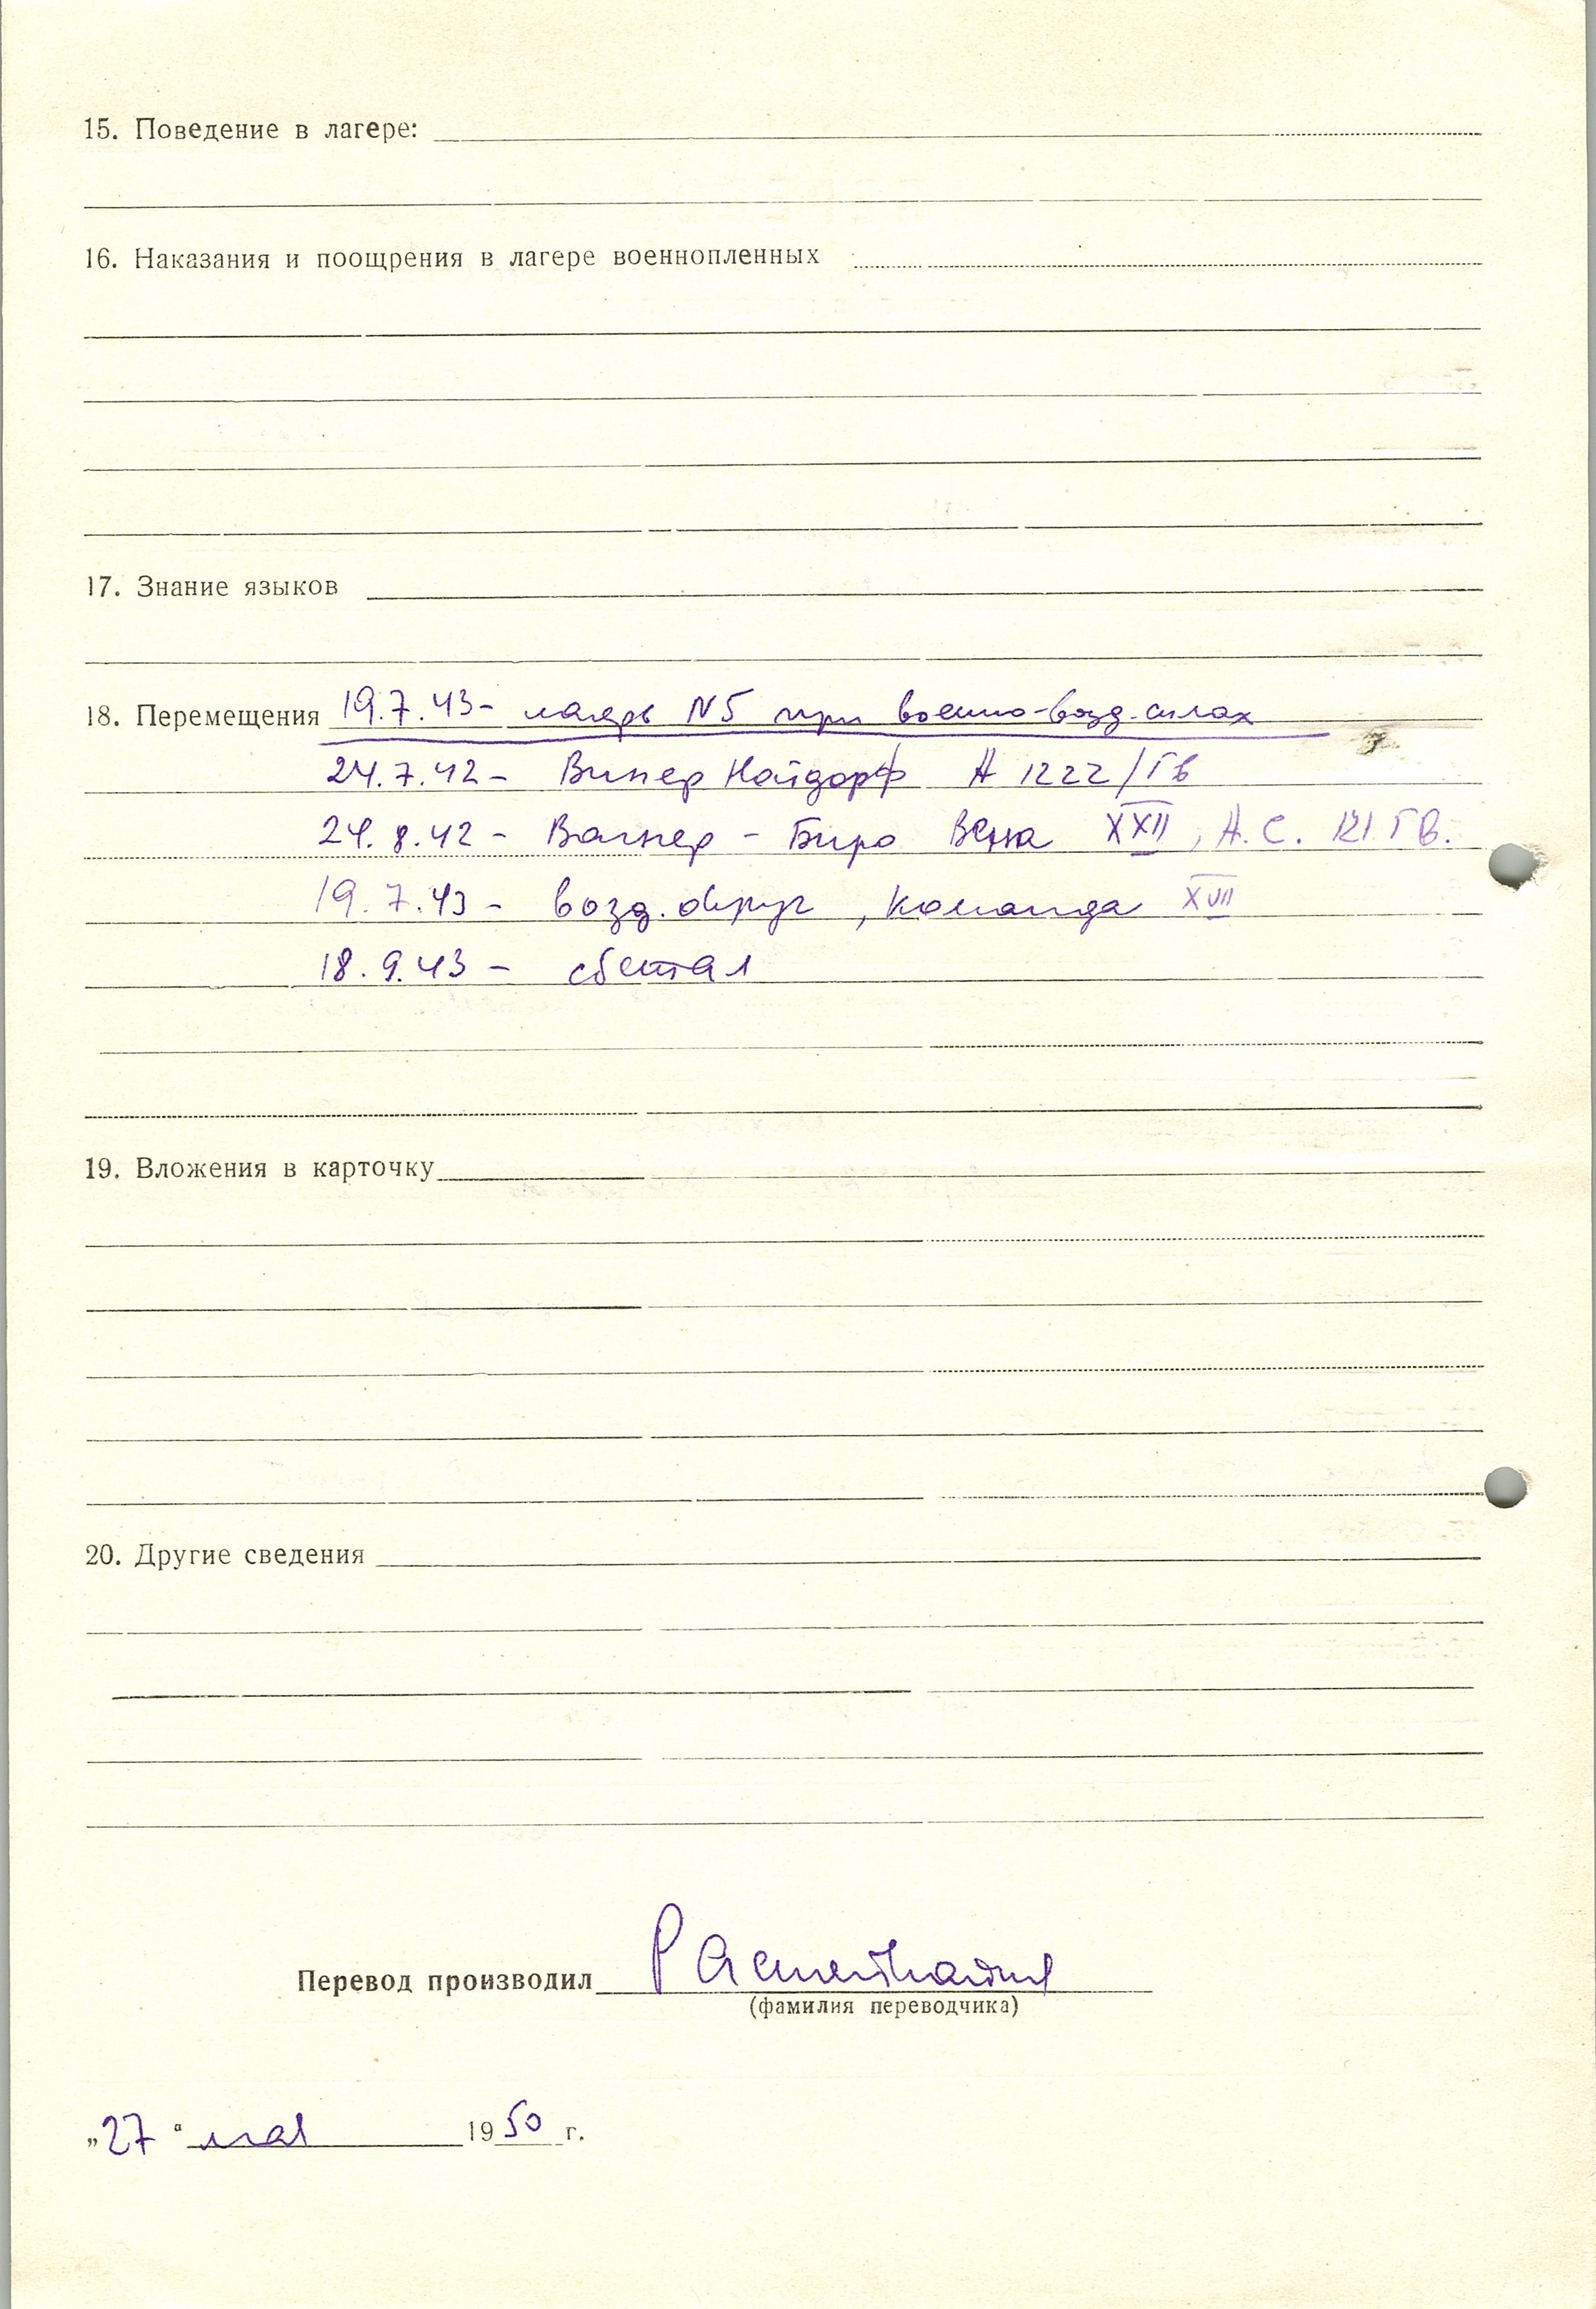 15. Поведение в лагере:
16. Наказания и поощрения в лагере военнопленных
17. Знание языков
18. Перемещения 19.7.43- лагерь N5 при военно-возд. силах
24.7.42- Винер Найдорф А 1222/ГВ
24.8.42- Вагнер - Биро Вена XXII, А.С. 121 ГВ.
19.7.43- возд. округ, команда XVII
18.9.43- сбежал
19. Вложения в карточку
20. Другие сведения
Перевод производил
(фамилия переводчика)
„27“ мая 1950 г.